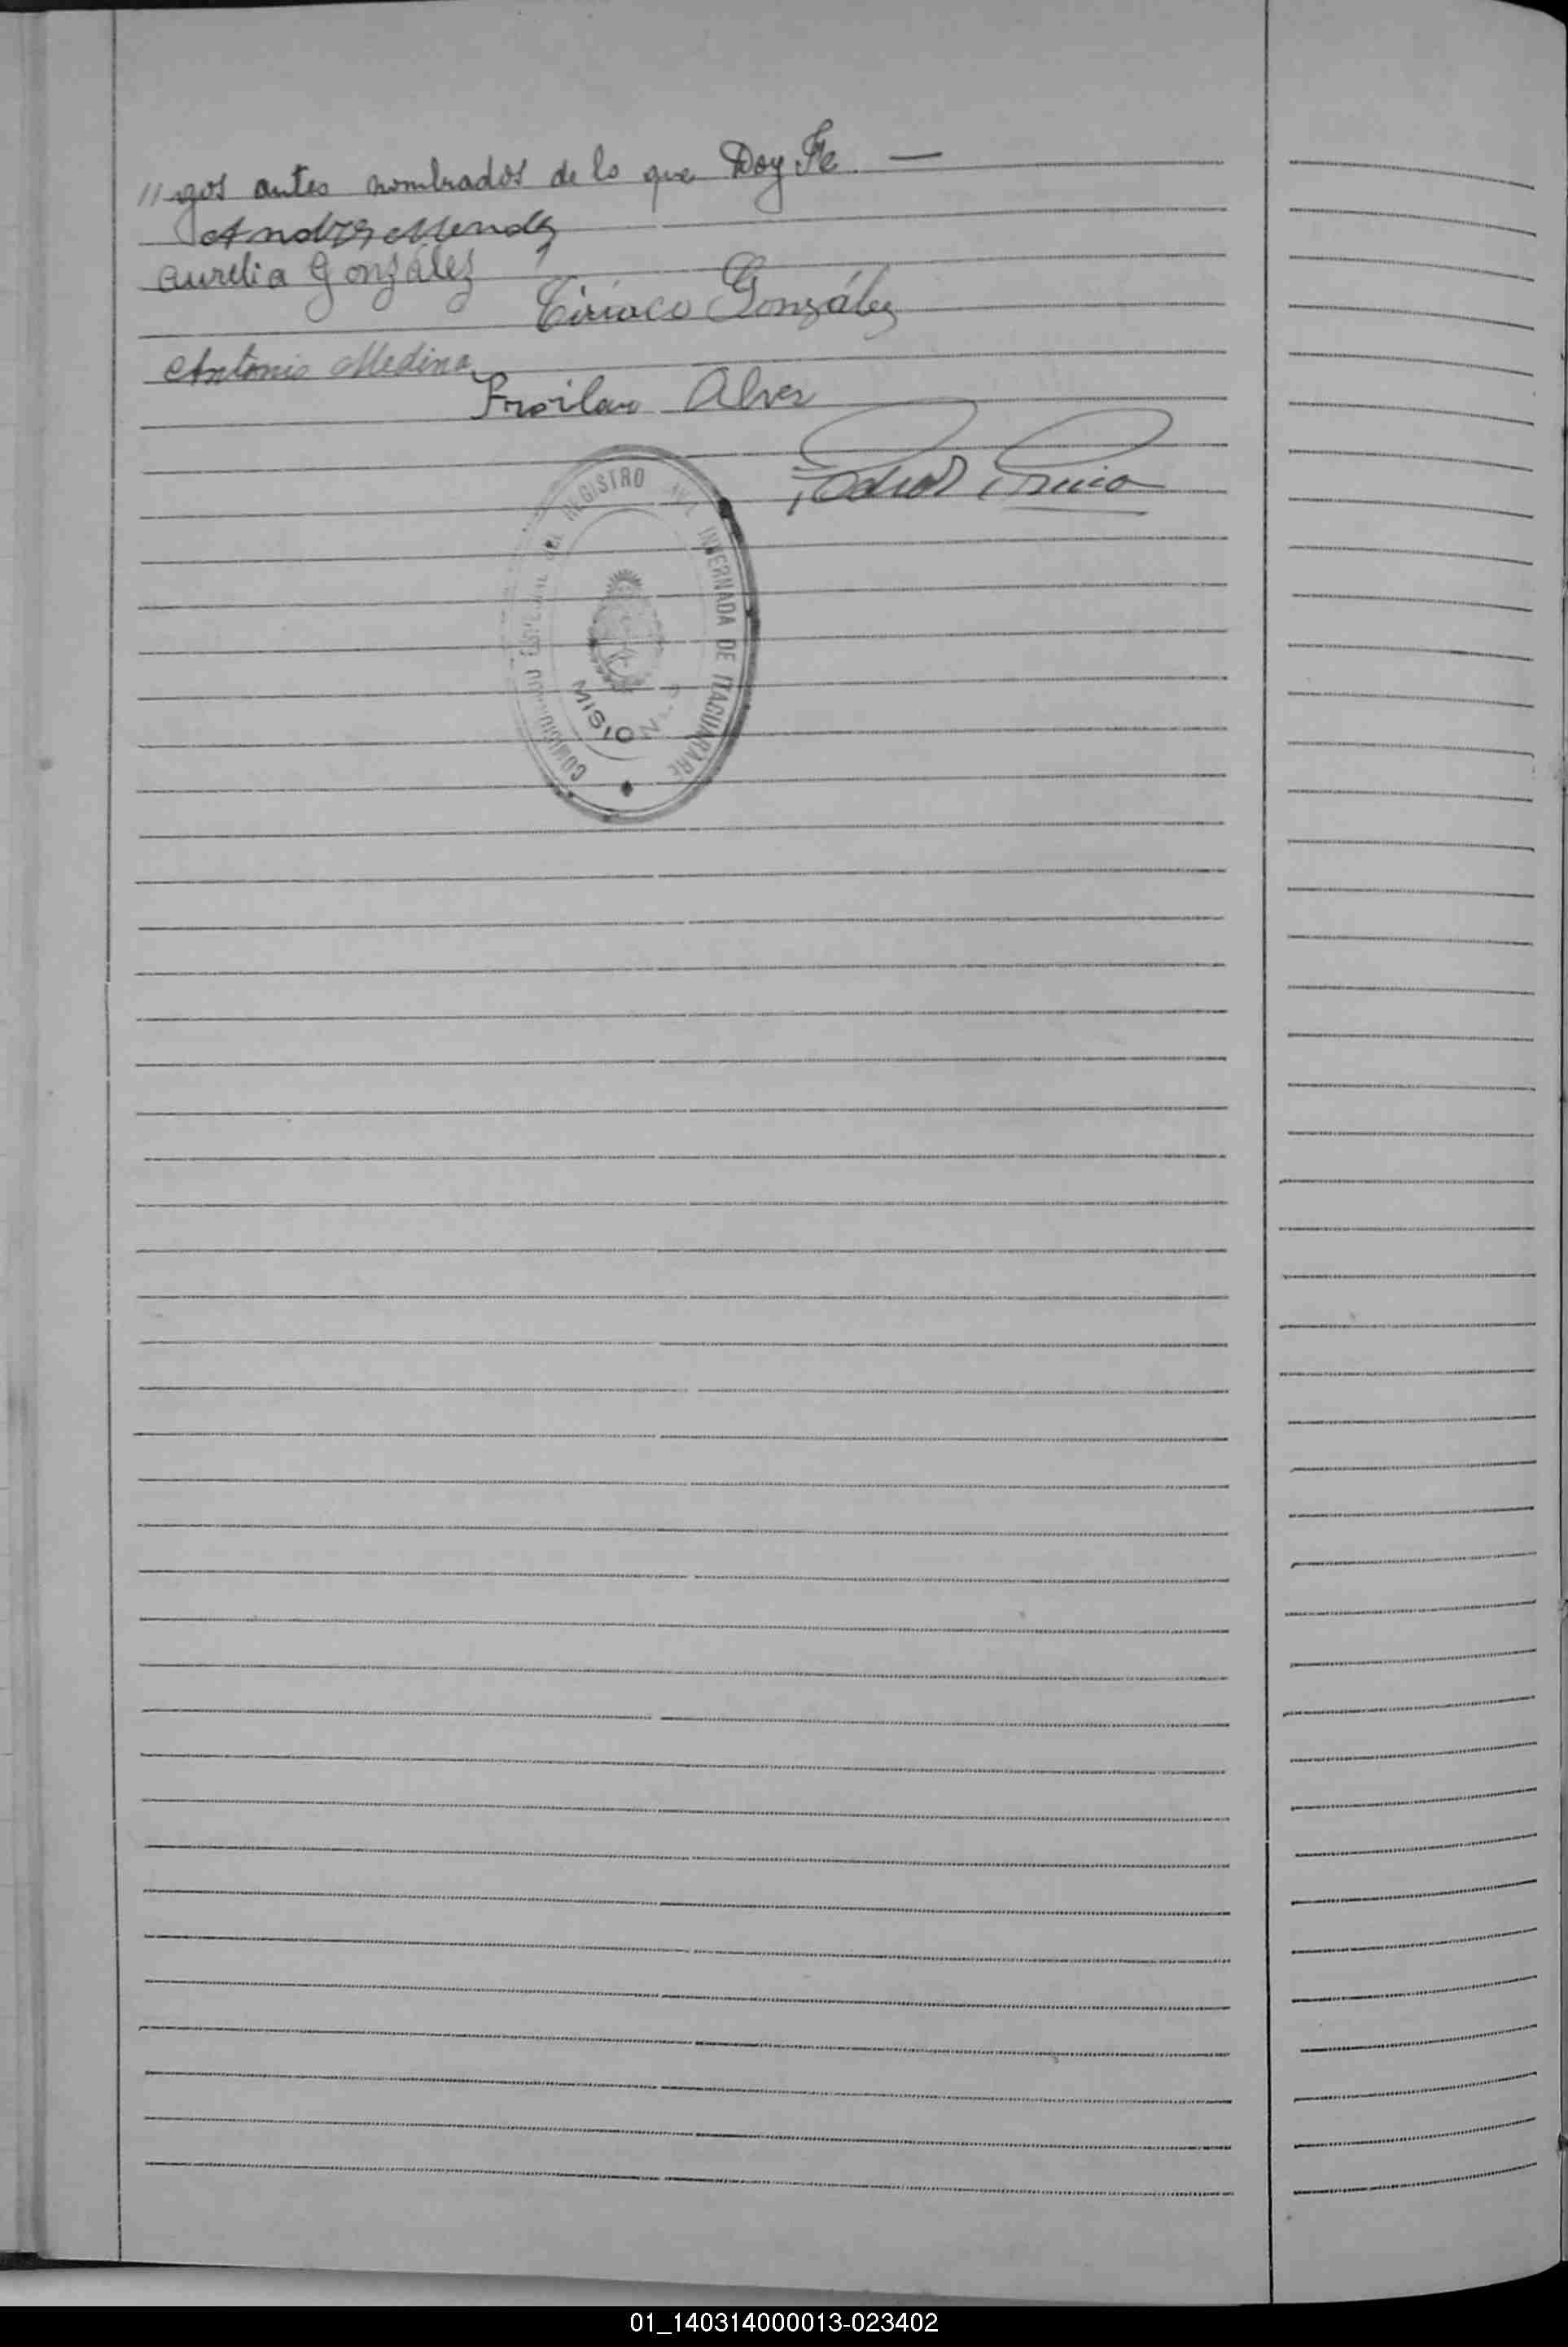 "gos antes nombrados de lo que Doy Fe. —
Andrés Mendez
Aurelia González
Ciriaco González
Antonio Medina
Froilan Alvez
COMISIONADO ESPECIAL DEL REGISTRO CIVIL INTERNADA DE ITACUARARE
MISIONES
01_140314000013-023402